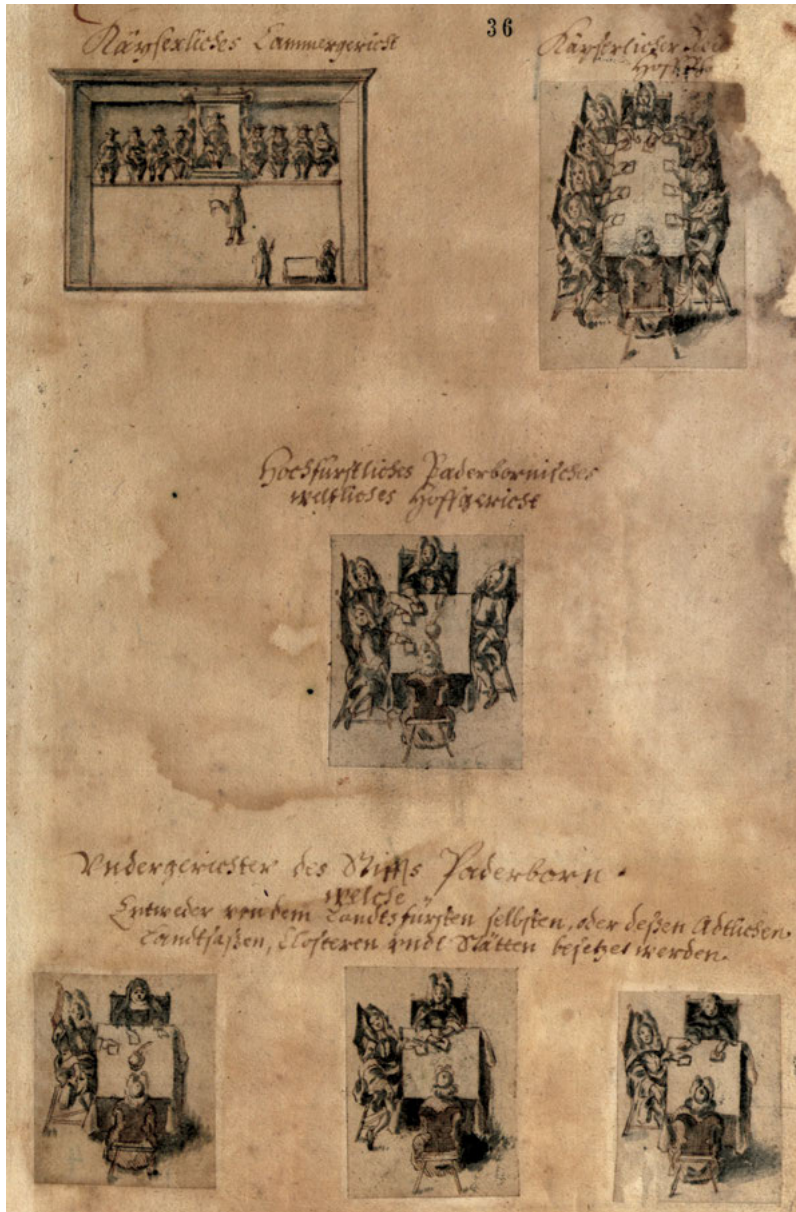 36
Käyserliches Cammergericht
Käyserlicher
Hochfürstliches Paderbornisches
weltliches Hoffgericht
Undergerichter des Stiffts Paderborn.
welche
Entweder von dem Landtsfürsten selbsten, oder deßen Adtlichen
Landtsaßen, Clösteren undt Stätten besetzet werden.